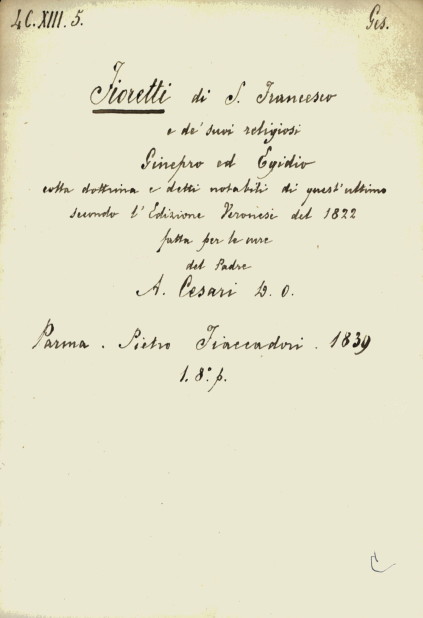 4C.XIII.5. Ges.
Fioretti di S. Francesco
e de' suoi religiosi
Ginepro ed Egidio
colla dottrina e detti notabili di quest'ultimo
secondo l'Edizione Veronesi del 1822
fatta per le cure
del Padre
A. Cesari D. O.
Parma . Pietro Fiaccadori . 1839
1. 8.° p.